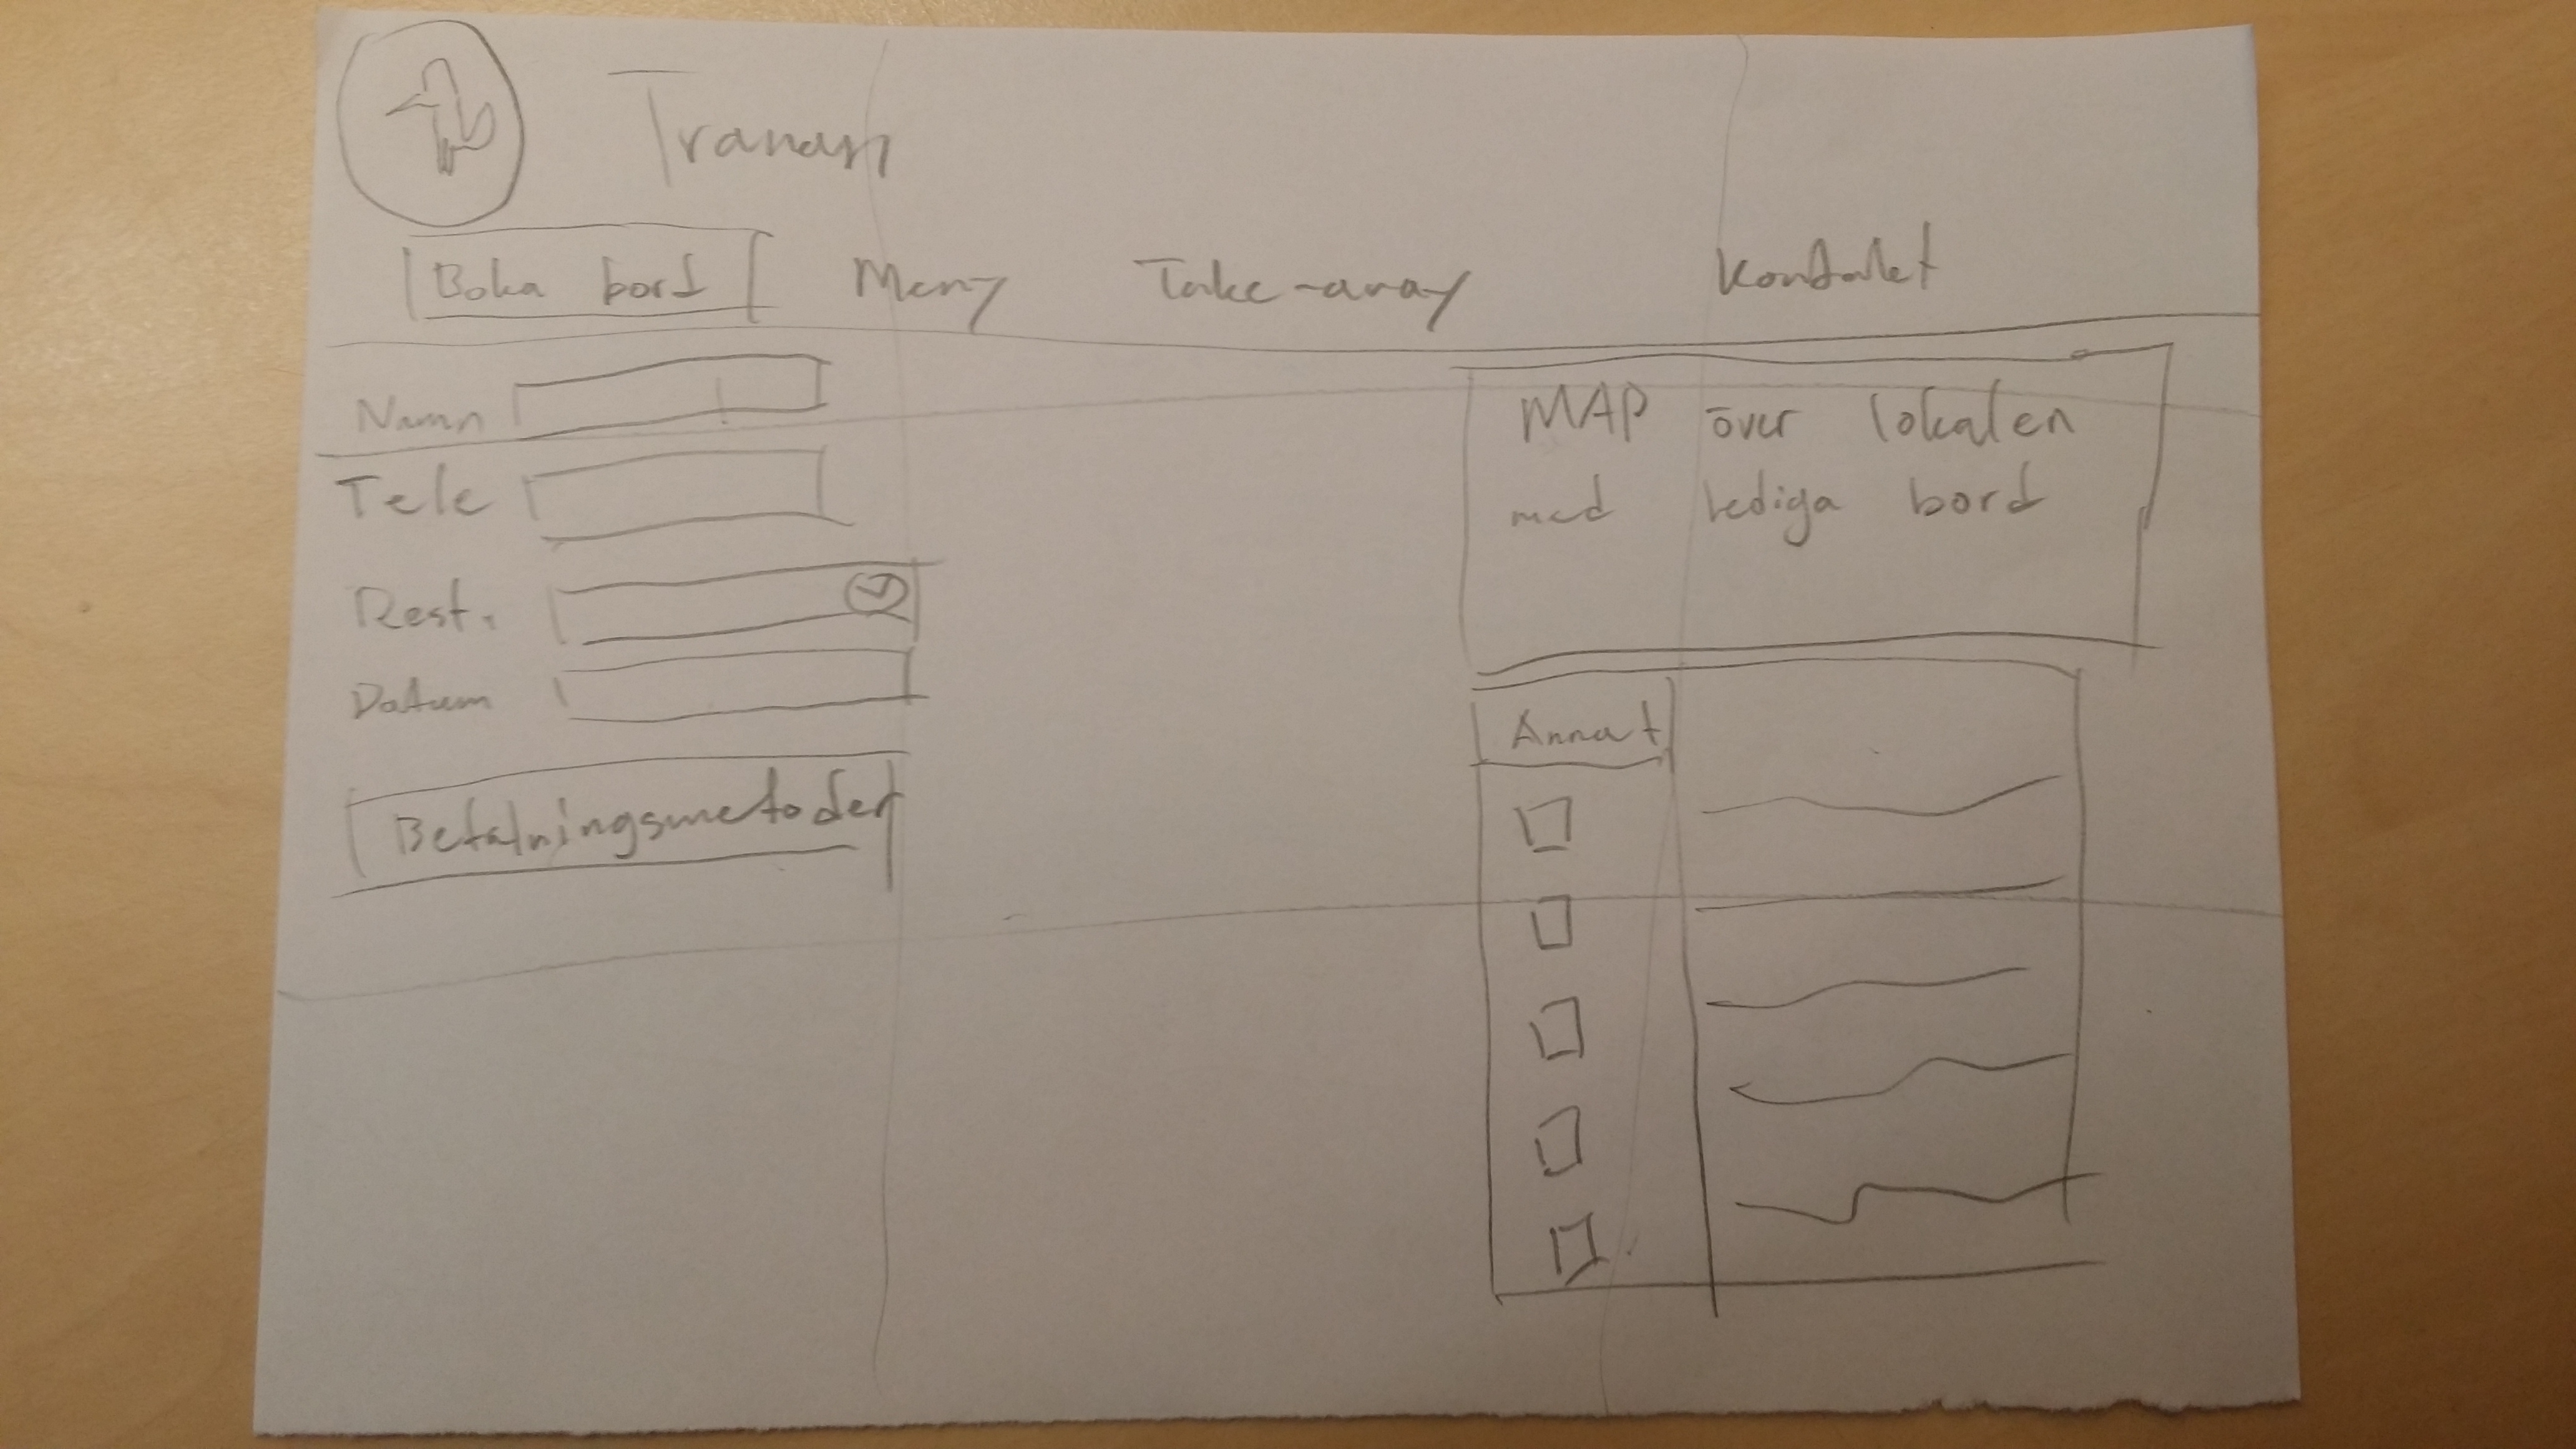 Tranan
Boka bord Meny Take-away Kontaket
Namn
Tele
Rest.
Datum
Betalningsmetoder
MAP över lokalen
med lediga bord
Annat